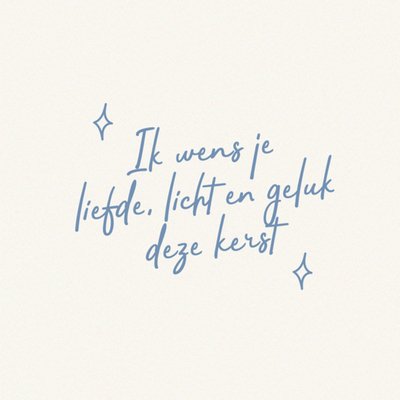 Ik wens je
liefde, licht en geluk
deze kerst